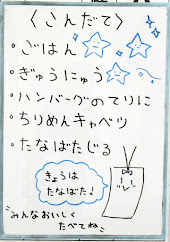 〈こんだて〉
・ごはん
・ぎゅうにゅう
・ハンバーグのてりに
・ちりめんキャベツ
・たなばたじる
きょうは
たなばた！
みんなおいしく
たべてね